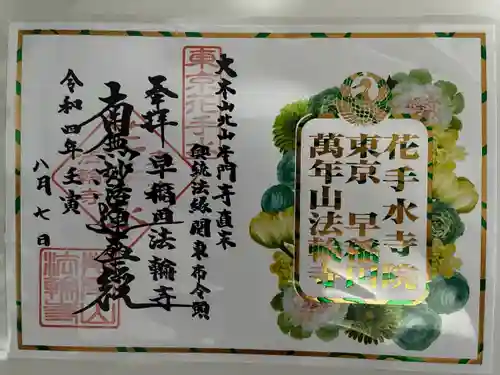 花手水寺院
東京 早稲田
萬年山法輪寺
大本山北山本門寺直末
興統法縁関東布令頭
東京花手水
奉拝 早稲田法輪寺
南無妙法蓮華経
令和四年壬寅
八月七日